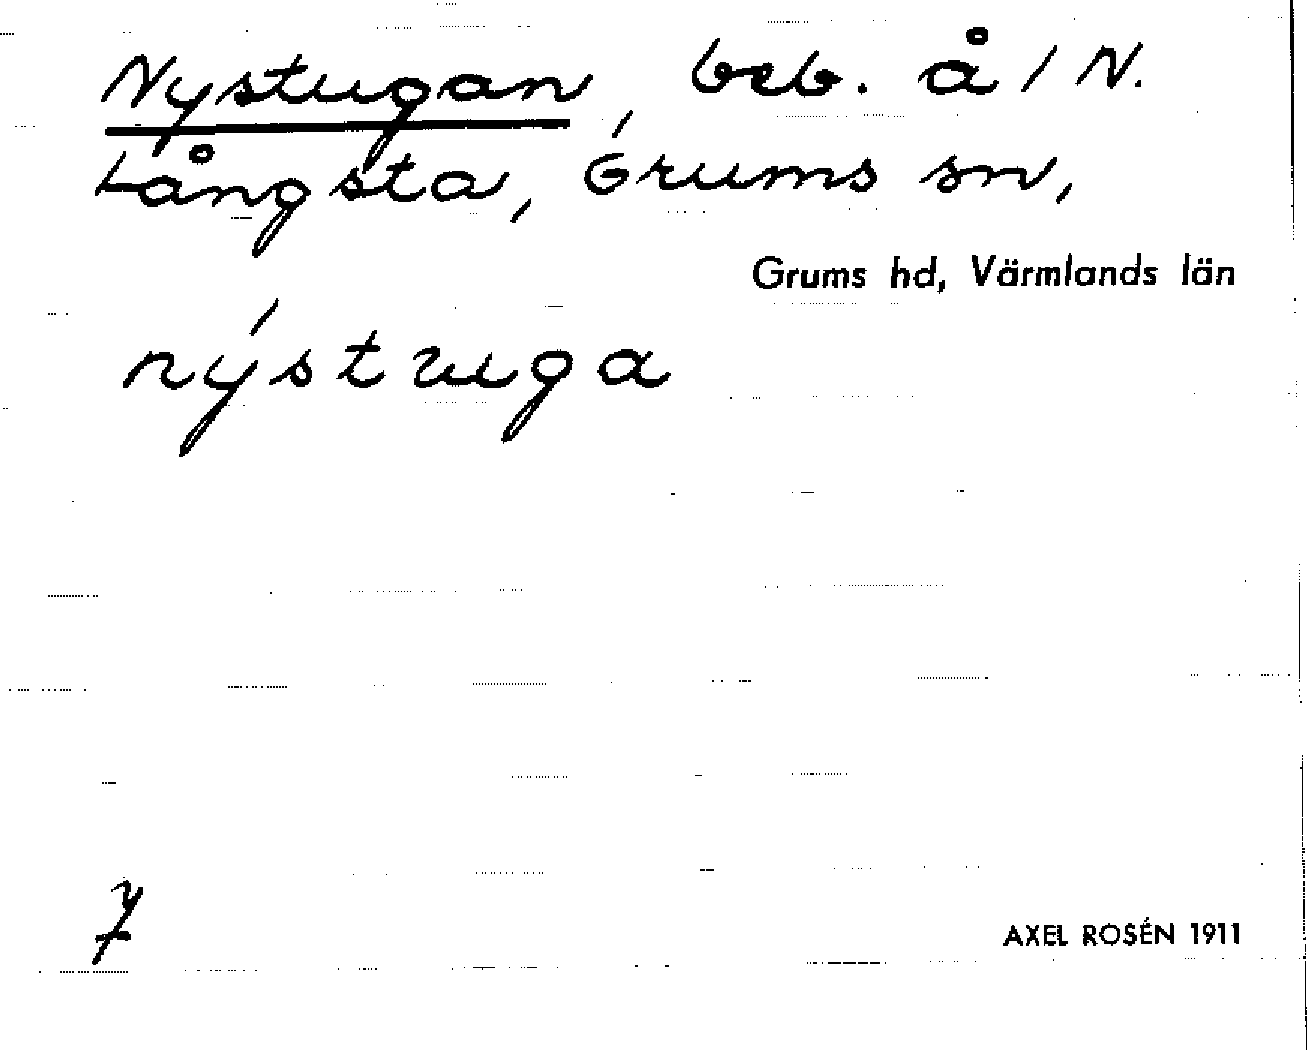 Nystugan, beb. å 1 N.
Långsta, Grums sn,
Grums hd, Värmlands län
ny´stuga
7
AXEL ROSÉN 1911